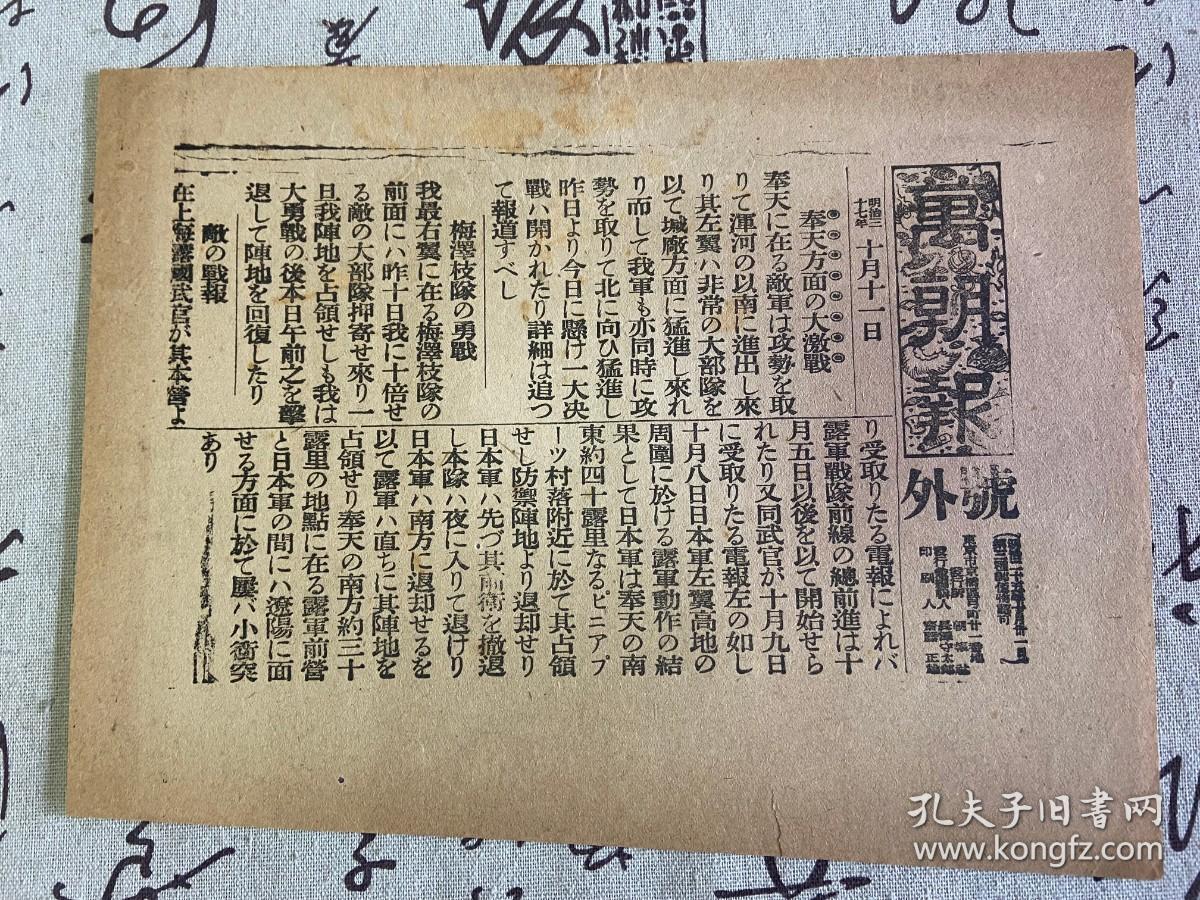 萬朝報
號外
東京市京橋區
發行所 朝報社
印刷人 齋藤正雄
明治三十七年 十月十一日
奉天方面の大激戰
奉天に在る敵軍は攻勢を取
りて渾河の以南に進出し來
り其左翼ハ非常の大部隊を
以て城厰方面に猛進し來れ
り而して我軍も亦同時に攻
勢を取りて北に向ひ猛進し
昨日より今日に懸け一大决
戰ハ開かれたり詳細は追つ
て報道すべし
梅澤枝隊の勇戰
我最右翼に在る梅澤枝隊の
前面にハ昨十日我に十倍せ
る敵の大部隊押寄せ來り一
旦我陣地を占領せしも我は
大勇戰の後本日午前之を擊
退して陣地を回復したり
敵の戰報
在上海露國武官が其本營よ
り受取りたる電報によれバ
露軍戰隊前線の總前進は十
月五日以後を以て開始せら
れたり又同武官が十月九日
に受取りたる電報左の如し
十月八日日本軍左翼高地の
周圍に於ける露軍動作の結
果として日本軍は奉天の南
東約四十露里なるピニアプ
ーツ村落附近に於て其占領
せし防禦陣地より退却せり
日本軍ハ先づ其前衛を撤退
し本隊ハ夜に入りて退けり
日本軍ハ南方に退却せるを
以て露軍ハ直ちに其陣地を
占領せり奉天の南方約三十
露里の地點に在る露軍前營
と日本軍の間にハ遼陽に面
せる方面に於て屢バ小衝突
あり
孔夫子旧书网
www.kongfz.com